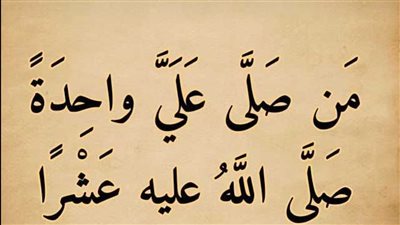 مَن صَلَّى عَلَيَّ واحدَةً
صَلَّى اللَّهُ عليه عَشْرًا